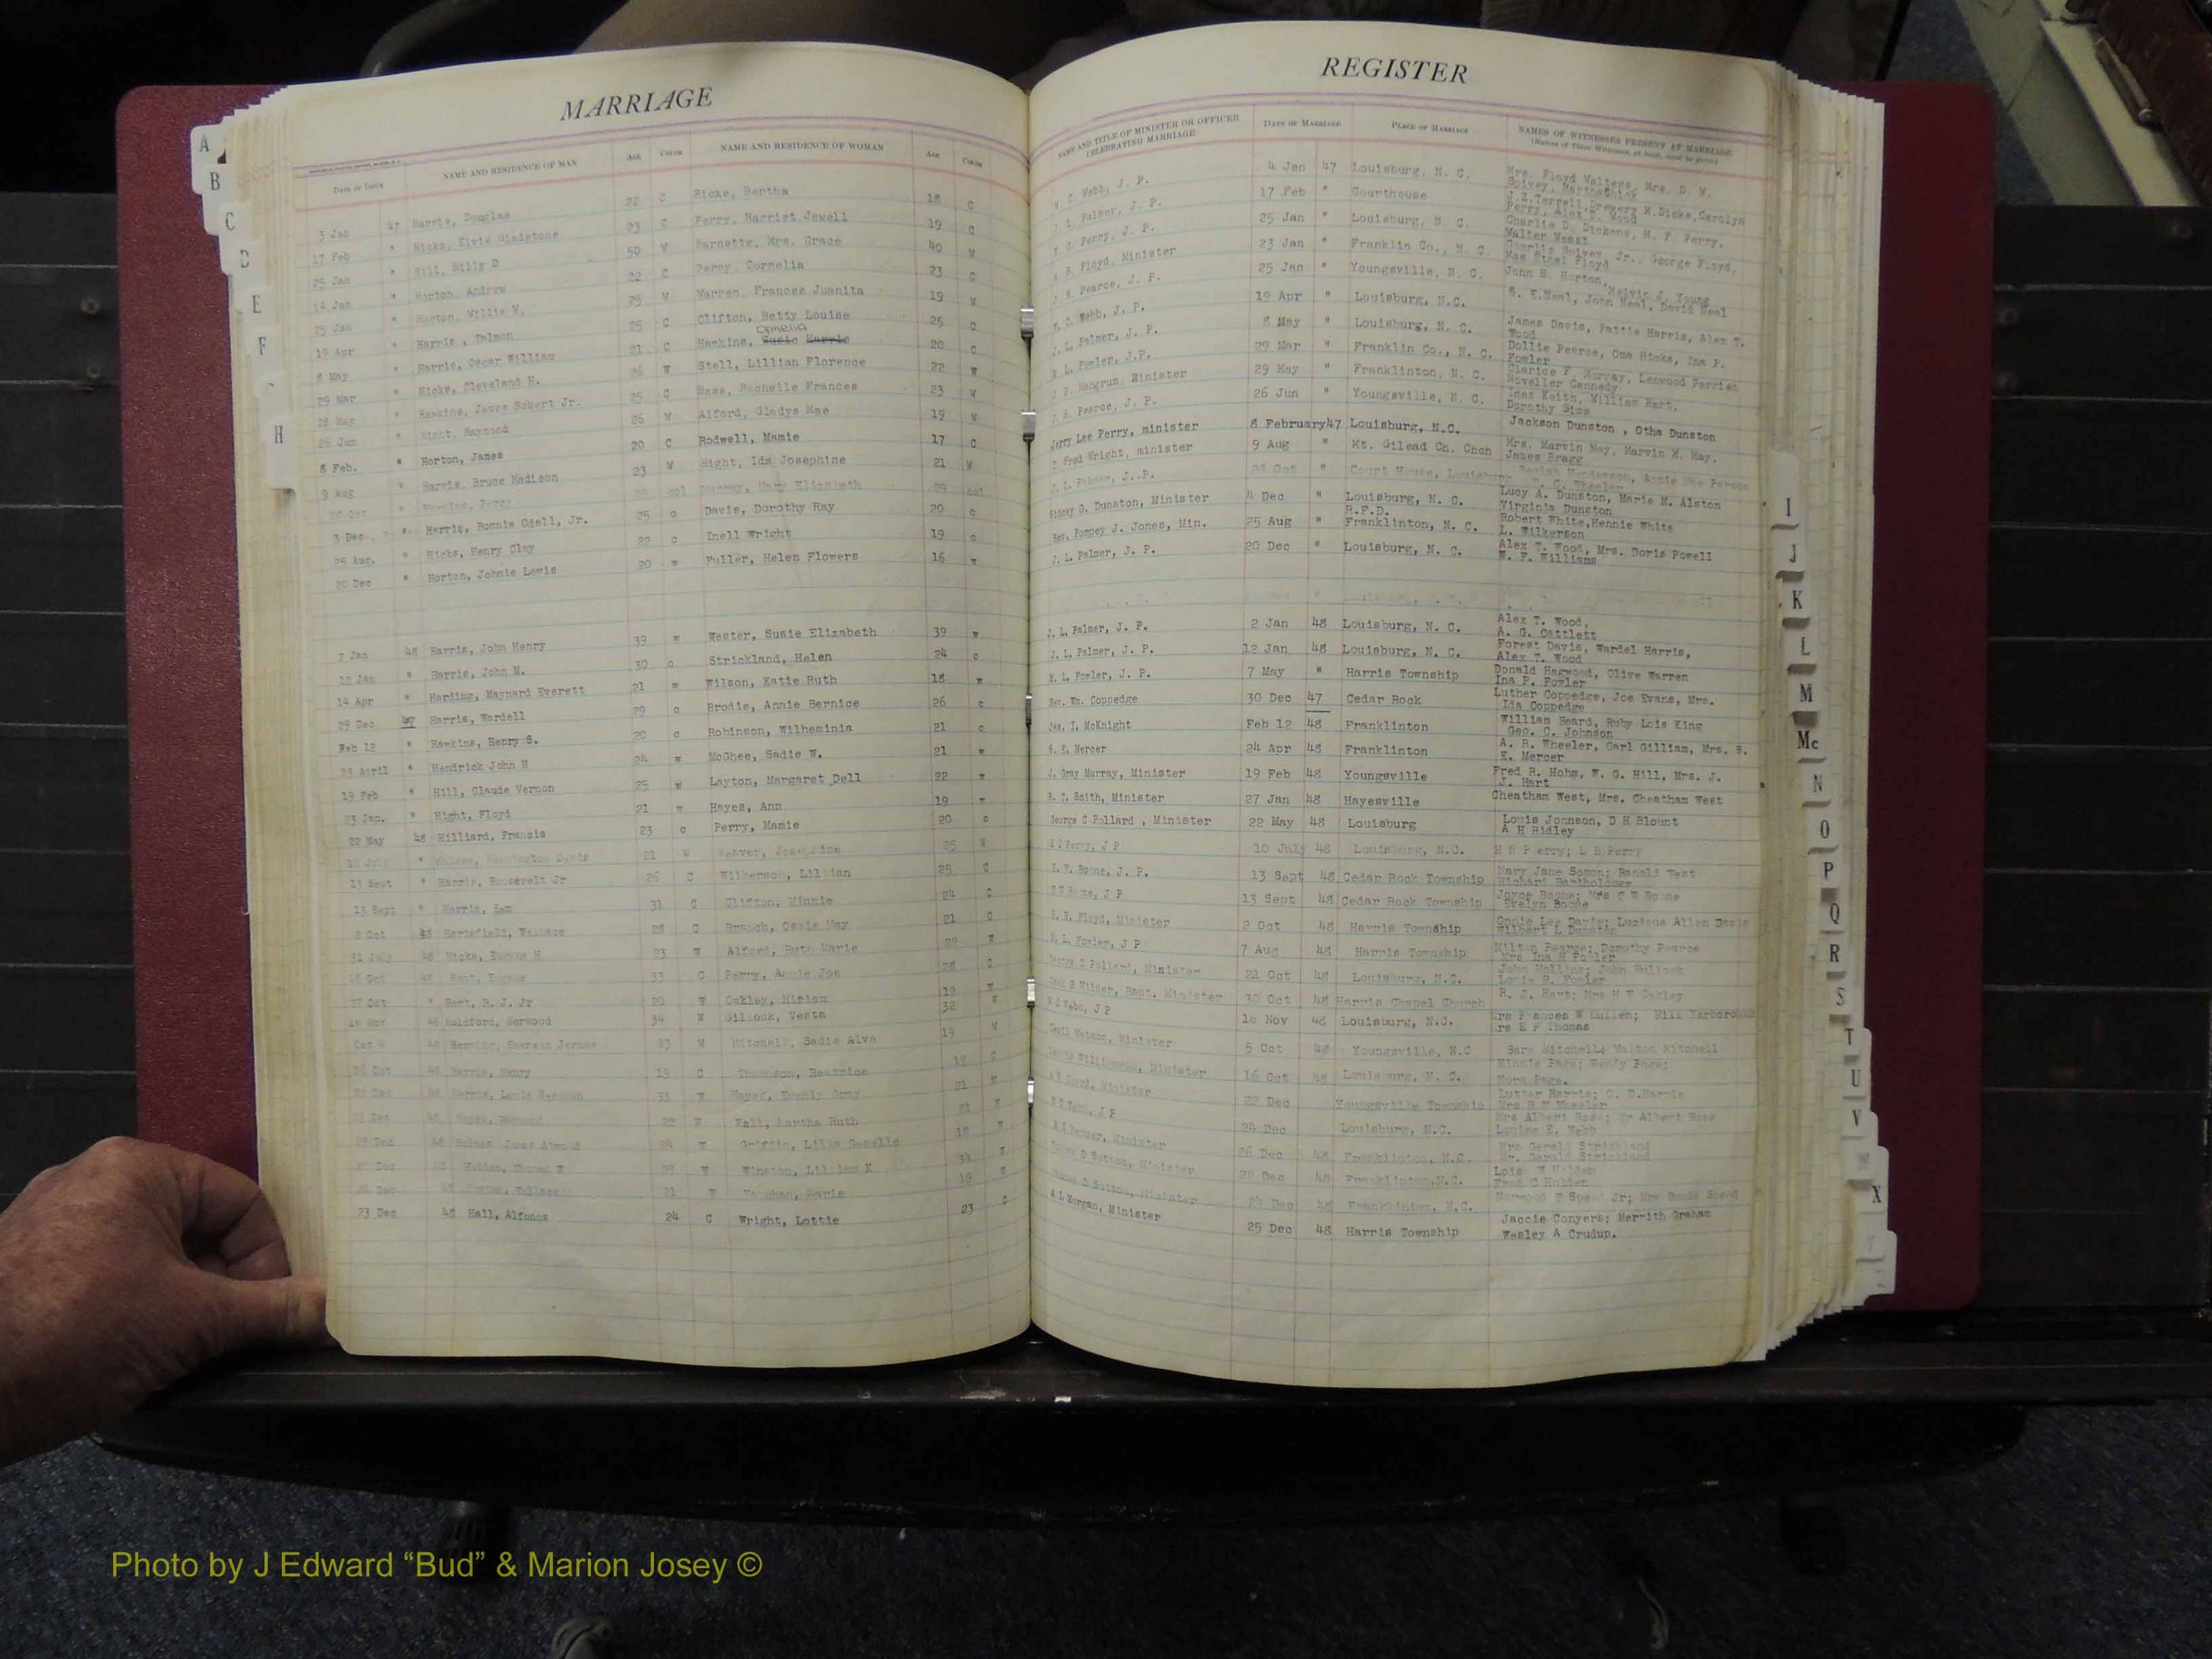 MARRIAGE
DATE OF ISSUE NAME AND RESIDENCE OF MAN AGE COLOR NAME AND RESIDENCE OF WOMAN AGE COLOR
3 Jan 47 Harris, Douglas 22 C Hicks, Bertha 18 C
17 Feb " Hicks, Elvis Gladstone 23 C Perry, Harriet Jewell 19 C
25 Jan " Hill, Billy D 50 W Barnette, Mrs. Grace 40 W
18 Jan " Horton, Andrew 22 C Perry, Cornelia 23 C
25 Jan " Horton, Willie W. 25 W Warren, Frances Juanita 19 W
19 Apr " Harris, Talmon 25 C Clifton, Betty Louise 25 C
Ophelia
8 May " Harris, Oscar William 21 C Hawkins, Susie Harris 20 C
29 Mar " Hicks, Cleveland H. 26 W Stell, Lillian Florence 22 W
28 May " Hawkins, James Robert Jr. 25 C Bass, Rochelle Frances 23 W
26 Jun " Hight, Raymond 26 W Alford, Gladys Mae 19 W
8 Feb. " Horton, James 20 C Rodwell, Mamie 17 C
9 Aug " Harris, Bruce Madison 23 W Hight, Ida Josephine 21 W
Hawkins, Percy col Murray, Mary Elizabeth 29 col
3 Dec " Harris, Bonnie Odell, Jr. 25 c Davis, Dorothy Ray 20 c
25 Aug. " Hicks, Henry Clay 22 c Inell Wright 19 c
20 Dec " Horton, Johnie Lewis 20 w Fuller, Helen Flowers 16 w
2 Jan 48 Harris, John Henry 39 w Wester, Susie Elizabeth 39 w
12 Jan " Harris, John M. 30 c Strickland, Helen 24 c
14 Apr " Harding, Maynard Everett 21 w Wilson, Katie Ruth 18 w
29 Dec 47 Harris, Wardell 29 c Brodie, Annie Bernice 26 c
Feb 12 " Hawkins, Henry S. 20 c Robinson, Wilheminia 21 c
23 April " Hendrick John M 24 w McGhee, Sadie W. 21 w
19 Feb " Hill, Claude Vernon 25 w Layton, Margaret Dell 22 w
23 Jan. " Hight, Floyd 21 w Hayes, Ann 19 w
22 May 48 Hilliard, Francis 23 c Perry, Mamie 20 c
10 July " Davis 21 W Weaver, Josephine 25 W
13 Sept " Harris, Roosevelt Jr 26 C Wilkerson, Lillian 25 C
13 Sept " Harris, Sam 31 C Clifton, Minnie 24 C
2 Oct 48 Hartsfield, Wallace 28 C Branch, Ossie May 21 C
31 July 48 Hicks, Eugene H 23 W Alford, Ruth Marie 22 W
48 Hunt, 33 C Perry, Annie Joe 28 C
27 Oct " Hart, R. J. Jr 20 W Oakley, Miriam 19 W
16 Nov 48 Holdford, Norwood 34 W Gillock, Vesta 32 W
Oct 4 48 Jerome 23 W Mitchell, Sadie Alva 19 W
16 Oct 48 Harris, Henry 19 C Thompson, Beatrice 19 C
22 Dec 48 Harris, Louis 31 W Hayes, Evenly Gray 21 W
23 Dec 48 Hayes, Raymond 22 W Wall, Martha Ruth 21 W
23 Dec 48 Holmes James 24 W Griffin, Lillie Genelle 18 W
Dec 48 Holden, Thomas W 29 W Winston, Lilliam K 34 W
Dec 48 Wallace 21 W Vaughan, Marie 19 W
23 Dec 48 Hall, Alfonos 24 C Wright, Lottie 23 C
REGISTER
NAME AND TITLE OF MINISTER OR OFFICER CELEBRATING MARRIAGE DATE OF MARRIAGE PLACE OF MARRIAGE NAMES OF WITNESSES PRESENT AT MARRIAGE
(Names of Three Witnesses, at least, must be given)
Webb, J. P. 4 Jan 47 Louisburg, N. C. Mrs. Floyd Walters, Mrs. D. W.
Spivey,
L. Palmer, J. P. 17 Feb " Courthouse J.Z.Terrell, Drewery M.Dicks, Carolyn
Perry, Alex T. Wood
Perry, J. P. 25 Jan " Louisburg, N. C. Charlie D. Dickens, H. F. Perry,
Walter
B. Floyd, Minister 23 Jan " Franklin Co., N. C. Charlie Spivey, Jr., George Floyd,
Mae Ethel Floyd
Pearce, J. P. 25 Jan " Youngsville, N. C. John B. Horton,
Melvin J. Young
W. C. Webb, J. P. 19 Apr " Louisburg, N.C. S. E.Neal, John Neal, David Neal
J. L. Palmer, J. P. 8 May " Louisburg, N. C. James Davis, Pattie Harris, Alex T.
Wood
L. Fowler, J.P. 29 Mar " Franklin Co., N. C. Dollie Pearce, Oma Hicks, Ina P.
Fowler
J. P. Mangrum, Minister 29 May " Franklinton, N. C. Clarice F. Murray, Lenwood Parrish
Noveller Cannedy
Pearce, J. P. 26 Jun " Youngsville, N. C. Inez Keith, William Hart,
Dorothy Sims
Jerry Lee Perry, minister 8 February47 Louisburg, N.C. Jackson Dunston , Otha Dunston
Fred Wright, minister 9 Aug " Mt. Gilead Ch. Chch Mrs. Marvin May, Marvin M. May,
James Bragg
J. L. Palmer, J..P. Oct " Court House, Louisburg Henderson, Annie Mae Person
C. Wheeler
Sidney G. Dunston, Minister 4 Dec " Louisburg, N. C. Lucy A. Dunston, Marie M. Alston
Virginia Dunston
Rev. Pompey J. Jones, Min. 25 Aug " R.F.D.
Franklinton, N. C. Robert White,Hennie White
L. Wilkerson
J. L. Palmer, J. P. 20 Dec " Louisburg, N. C. Alex T. Wood, Mrs. Doris Powell
W. F. Williams
J. L. Palmer, J. P. 2 Jan 48 Louisburg, N. C. Alex T. Wood,
A. G. Cattlett
J. L. Palmer, J. P. 12 Jan 48 Louisburg, N. C. Forest Davis, Wardel Harris,
Alex T. Wood
L. Fowler, J. P. 7 May " Harris Township Donald Hagwood, Olive Warren
Ina P. Fowler
Rev. Wm. Coppedge 30 Dec 47 Cedar Rock Luther Coppedge, Joe Evans, Mrs.
Ida Coppedge
Jas. I, McKnight Feb 12 48 Franklinton William Heard, Ruby Lois King
Geo. C. Johnson
S. E. Mercer 24 Apr 48 Franklinton A. R. Wheeler, Carl Gilliam, Mrs. S.
E. Mercer
J. Gray Murray, Minister 19 Feb 48 Youngsville Fred R. Hohm, W. G. Hill, Mrs. J.
J. Hart
Smith, Minister 27 Jan 48 Hayesville Cheatham West, Mrs. Cheatham West
George C Pollard , Minister 22 May 48 Louisburg Louis Johnson, D H Blount
A H Ridley
Perry, J P 10 July 48 Louisburg, N.C. H H Perry; L B Perry
T. W. Boone, J. P. 13 Sept 48 Cedar Rock Township Mary Jane Somon; Ranold West
Richard Bartholomew
T W Boone, J P 13 Sept 48 Cedar Rock Township Joyce Boone; Mrs C W Boone
Evelyn Boone
Floyd, Minister 2 Oct 48 Harris Township Onnie Lee Davis; Lucious Allen Davis
Wilbert L Dunston
L. Fowler, J P 7 Aug 48 Harris Township Milton Pearce; Dorothy Pearce
Mrs Ina H Fowler
George C Pollard, Minister 21 Oct 48 Louisburg, N.C. John Hollins; John Bullock
B Wilder, Bapt. Minister 30 Oct 48 Harris Chapel Church R. J. Hart; Mrs W W Oakley
W C Webb, J P 16 Nov 48 Louisburg, N.C. Mrs Frances W Cullen; Hill Yarborough
Mrs E F Thomas
Cecil Watson, Minister 5 Oct 48 Youngsville, N.C Sara Mitchell; Walton Mitchell
Williamson, Minister 16 Oct 48 Louisburg, N. C. Minnie Page; Ready Page;
Nora Page.
Minister 22 Dec Youngsville Township Luther Harris; O. D.Harris
Mrs R W Wheeler
W C Webb, J P 24 Dec Louisburg, N.C. Mrs Albert Ross; Mr Albert Ross
Louise E. Webb
Mercer, Minister 26 Dec 48 Franklinton, N.C. Mrs Gerald Strickland
Mr. Gerald Strickland
D Sutton, Minister 22 Dec 48 Franklinton,N.C. Lois W Holden
Fred C Holden
D Sutton, Minister Dec 48 Franklinton, N.C. Norwood F Speed Jr; Mrs Susie Speed
A L Morgan, Minister 25 Dec 48 Harris Township Jaccie Conyers; Merrith Graham
Wesley A Crudup.
A
B
C
D
E
F
H
I
J
K
L
M
Mc
N
O
P
Q
R
S
T
U
V
W
X
Photo by J Edward “Bud” & Marion Josey ©